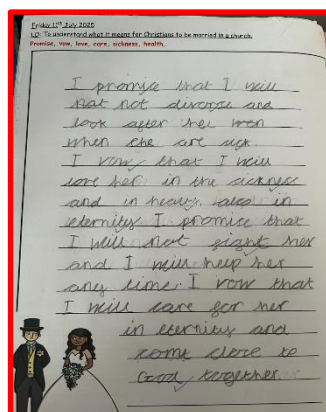 Friday 11th July 2025
LO: To understand what it means for Christians to be married in a church.
Promise, vow, love, care, sickness, health,
I promise that I will
hat not divorce and
look after her wen
when she are sick.
I vow that I will
love her in the sickness
and in healty also in
eternity. I promise that
I will not fight her
and I will help her
any time. I vow that
I will care for her
in eternity and
come close to
God together.